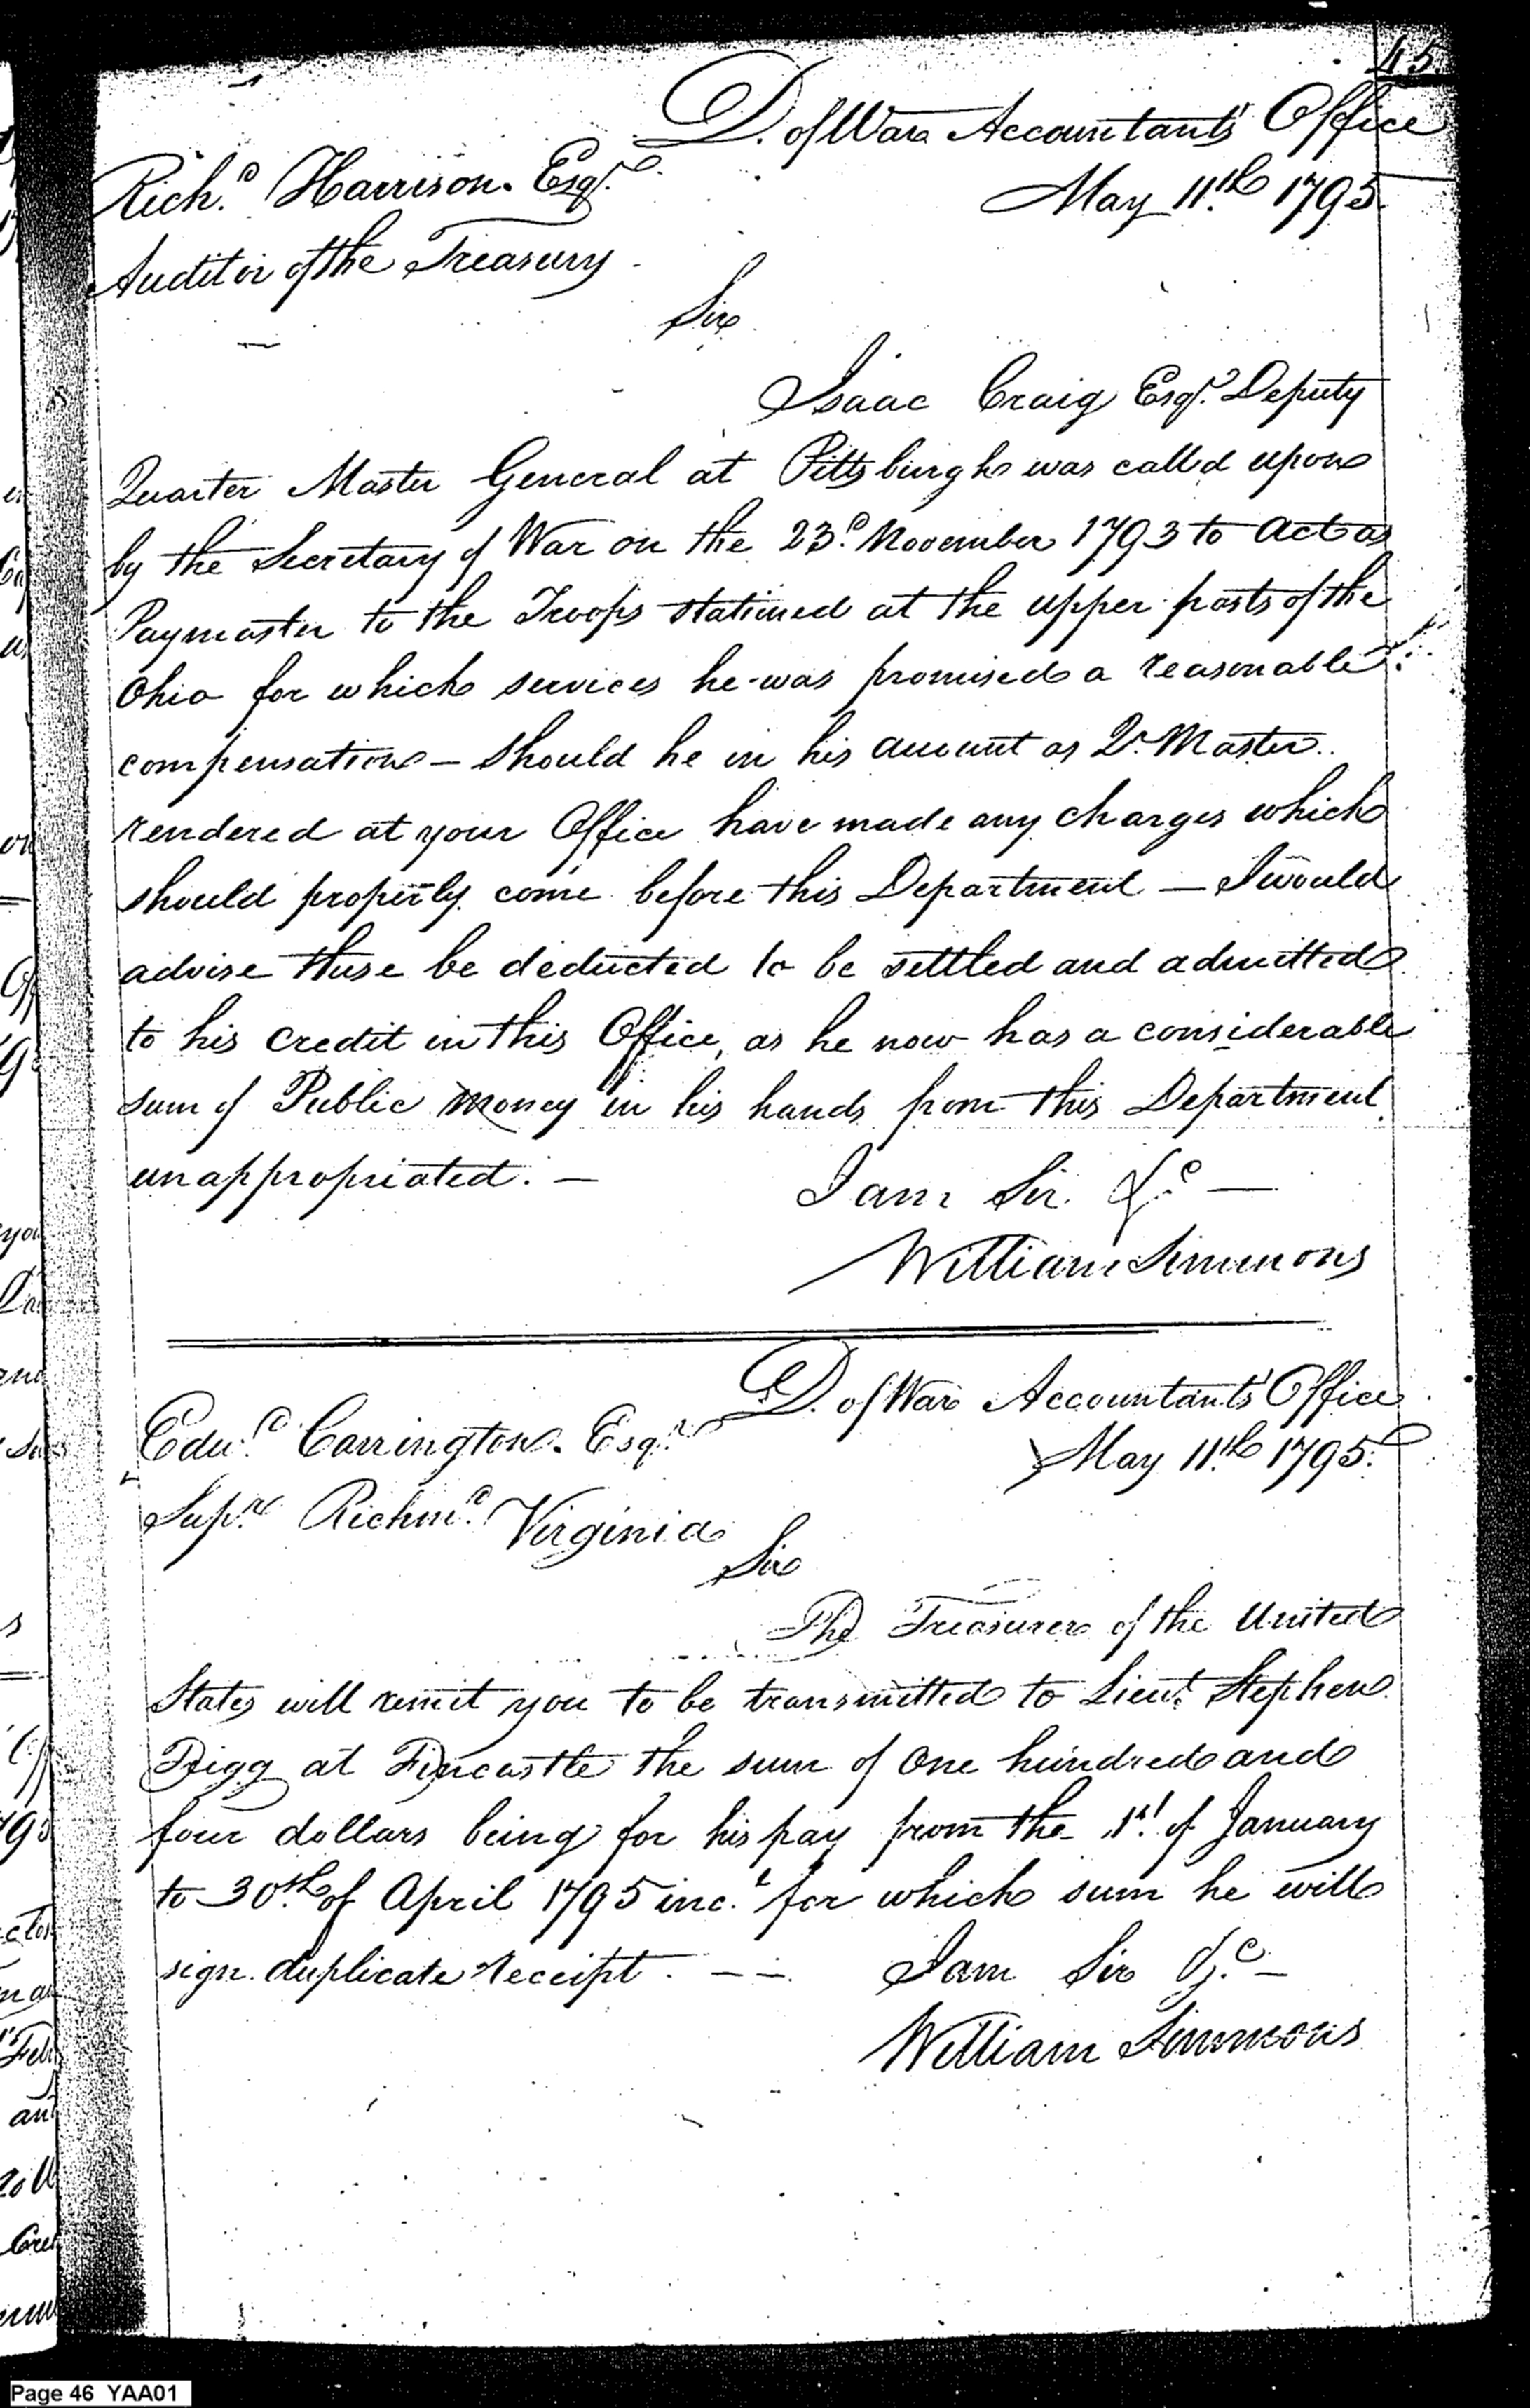 45.
D. of War Accountants Office
May 11th 1795
Richd Harrison Esqr.
Auditor of the Treasury
Sir
Isaac Craig Esqr. Deputy
Quarter Master General at Pittsburgh was called upon
by the Secretary of War on the 23d. November 1793 to act as
Paymaster to the Troops stationed at the upper posts of the
Ohio for which services he was promised a reasonable
compensation – should he in his account as Qr. Master
rendered at your Office have made any charges which
should properly come before this Department — I would
advise these be deducted to be settled and admitted
to his credit in this Office, as he now has a considerable
sum of Public Money in his hands from this Department
unappropriated. —
I am Sir &c —
William Simmons
D. of War Accountants' Office
May 11th 1795.
Edwd. Carrington Esqr
Supr. Richmd. Virginia
Sir
The Treasurer of the United
States will remit you to be transmitted to Lieut. Stephen
Trigg at Fincastle the sum of One hundred and
four dollars being for his pay from the 1st. of January
to 30th of April 1795 inc.e for which sum he will
sign duplicate receipt. – –
I am Sir &c. –
William Simmons
Page 46 YAA01